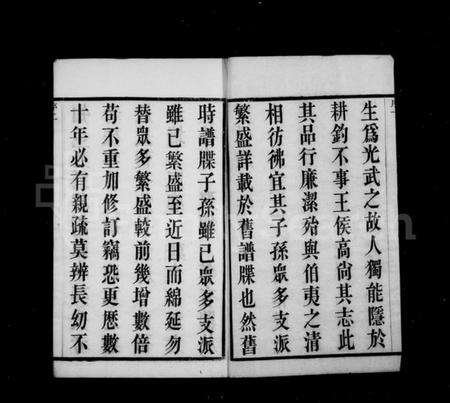 生爲光武之故人獨能隱於
耕釣不事王侯高尙其志此
其品行廉潔殆與伯夷之清
相彷彿宜其子孫眾多支派
繁盛詳載於舊譜牒也然舊
時譜牒子孫雖已眾多支派
雖已繁盛至近日而綿延勿
替眾多繁盛較前幾增數倍
苟不重加修訂竊恐更歷數
十年必有親疏莫辨長幼不